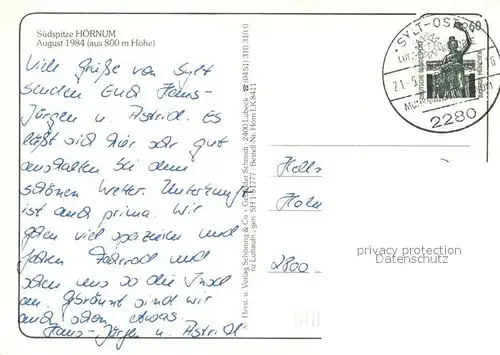 Südspitze HÖRNUM
August 1984 (aus 800 m Höhe)
Viele Grüße von Sylt
senden Euch Hans-
Jürgen u. Astrid. Es
läßt sich hier sehr gut
aushalten bei dem
schönen Wetter. Unterkunft
ist auch prima. Wir
gehen viel spazieren und
fahren Fahrrad und
sehen uns so die Insel
an. Gebräunt sind wir
auch schon etwas.
Hans-Jürgen u. Astrid
Herst. u. Verlag Schöning & Co · Gebrüder Schmidt · 2400 Lübeck ☎ (0451) 310 310 0
SYLT-OST
21.-5.
2280
60
2800
privacy protection
Datenschutz